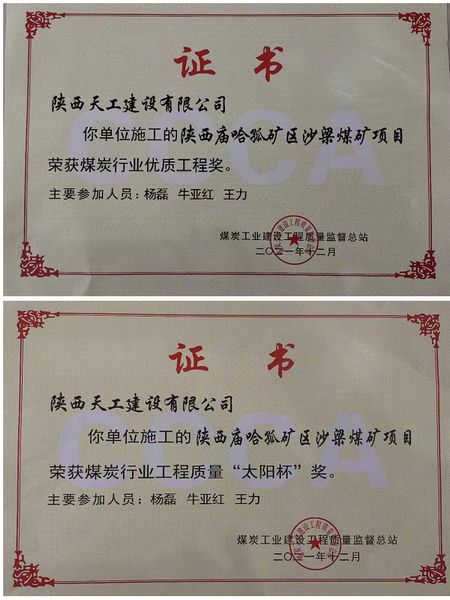 证书
陕西天工建设有限公司
你单位施工的陕西庙哈孤矿区沙梁煤矿项目
荣获煤炭行业优质工程奖。
主要参加人员：杨磊 牛亚红 王力
煤炭工业建设工程质量监督总站
二〇二一年十二月
证书
陕西天工建设有限公司
你单位施工的陕西庙哈孤矿区沙梁煤矿项目
荣获煤炭行业工程质量“太阳杯”奖。
主要参加人员：杨磊 牛亚红 王力
煤炭工业建设工程质量监督总站
二〇二一年十二月